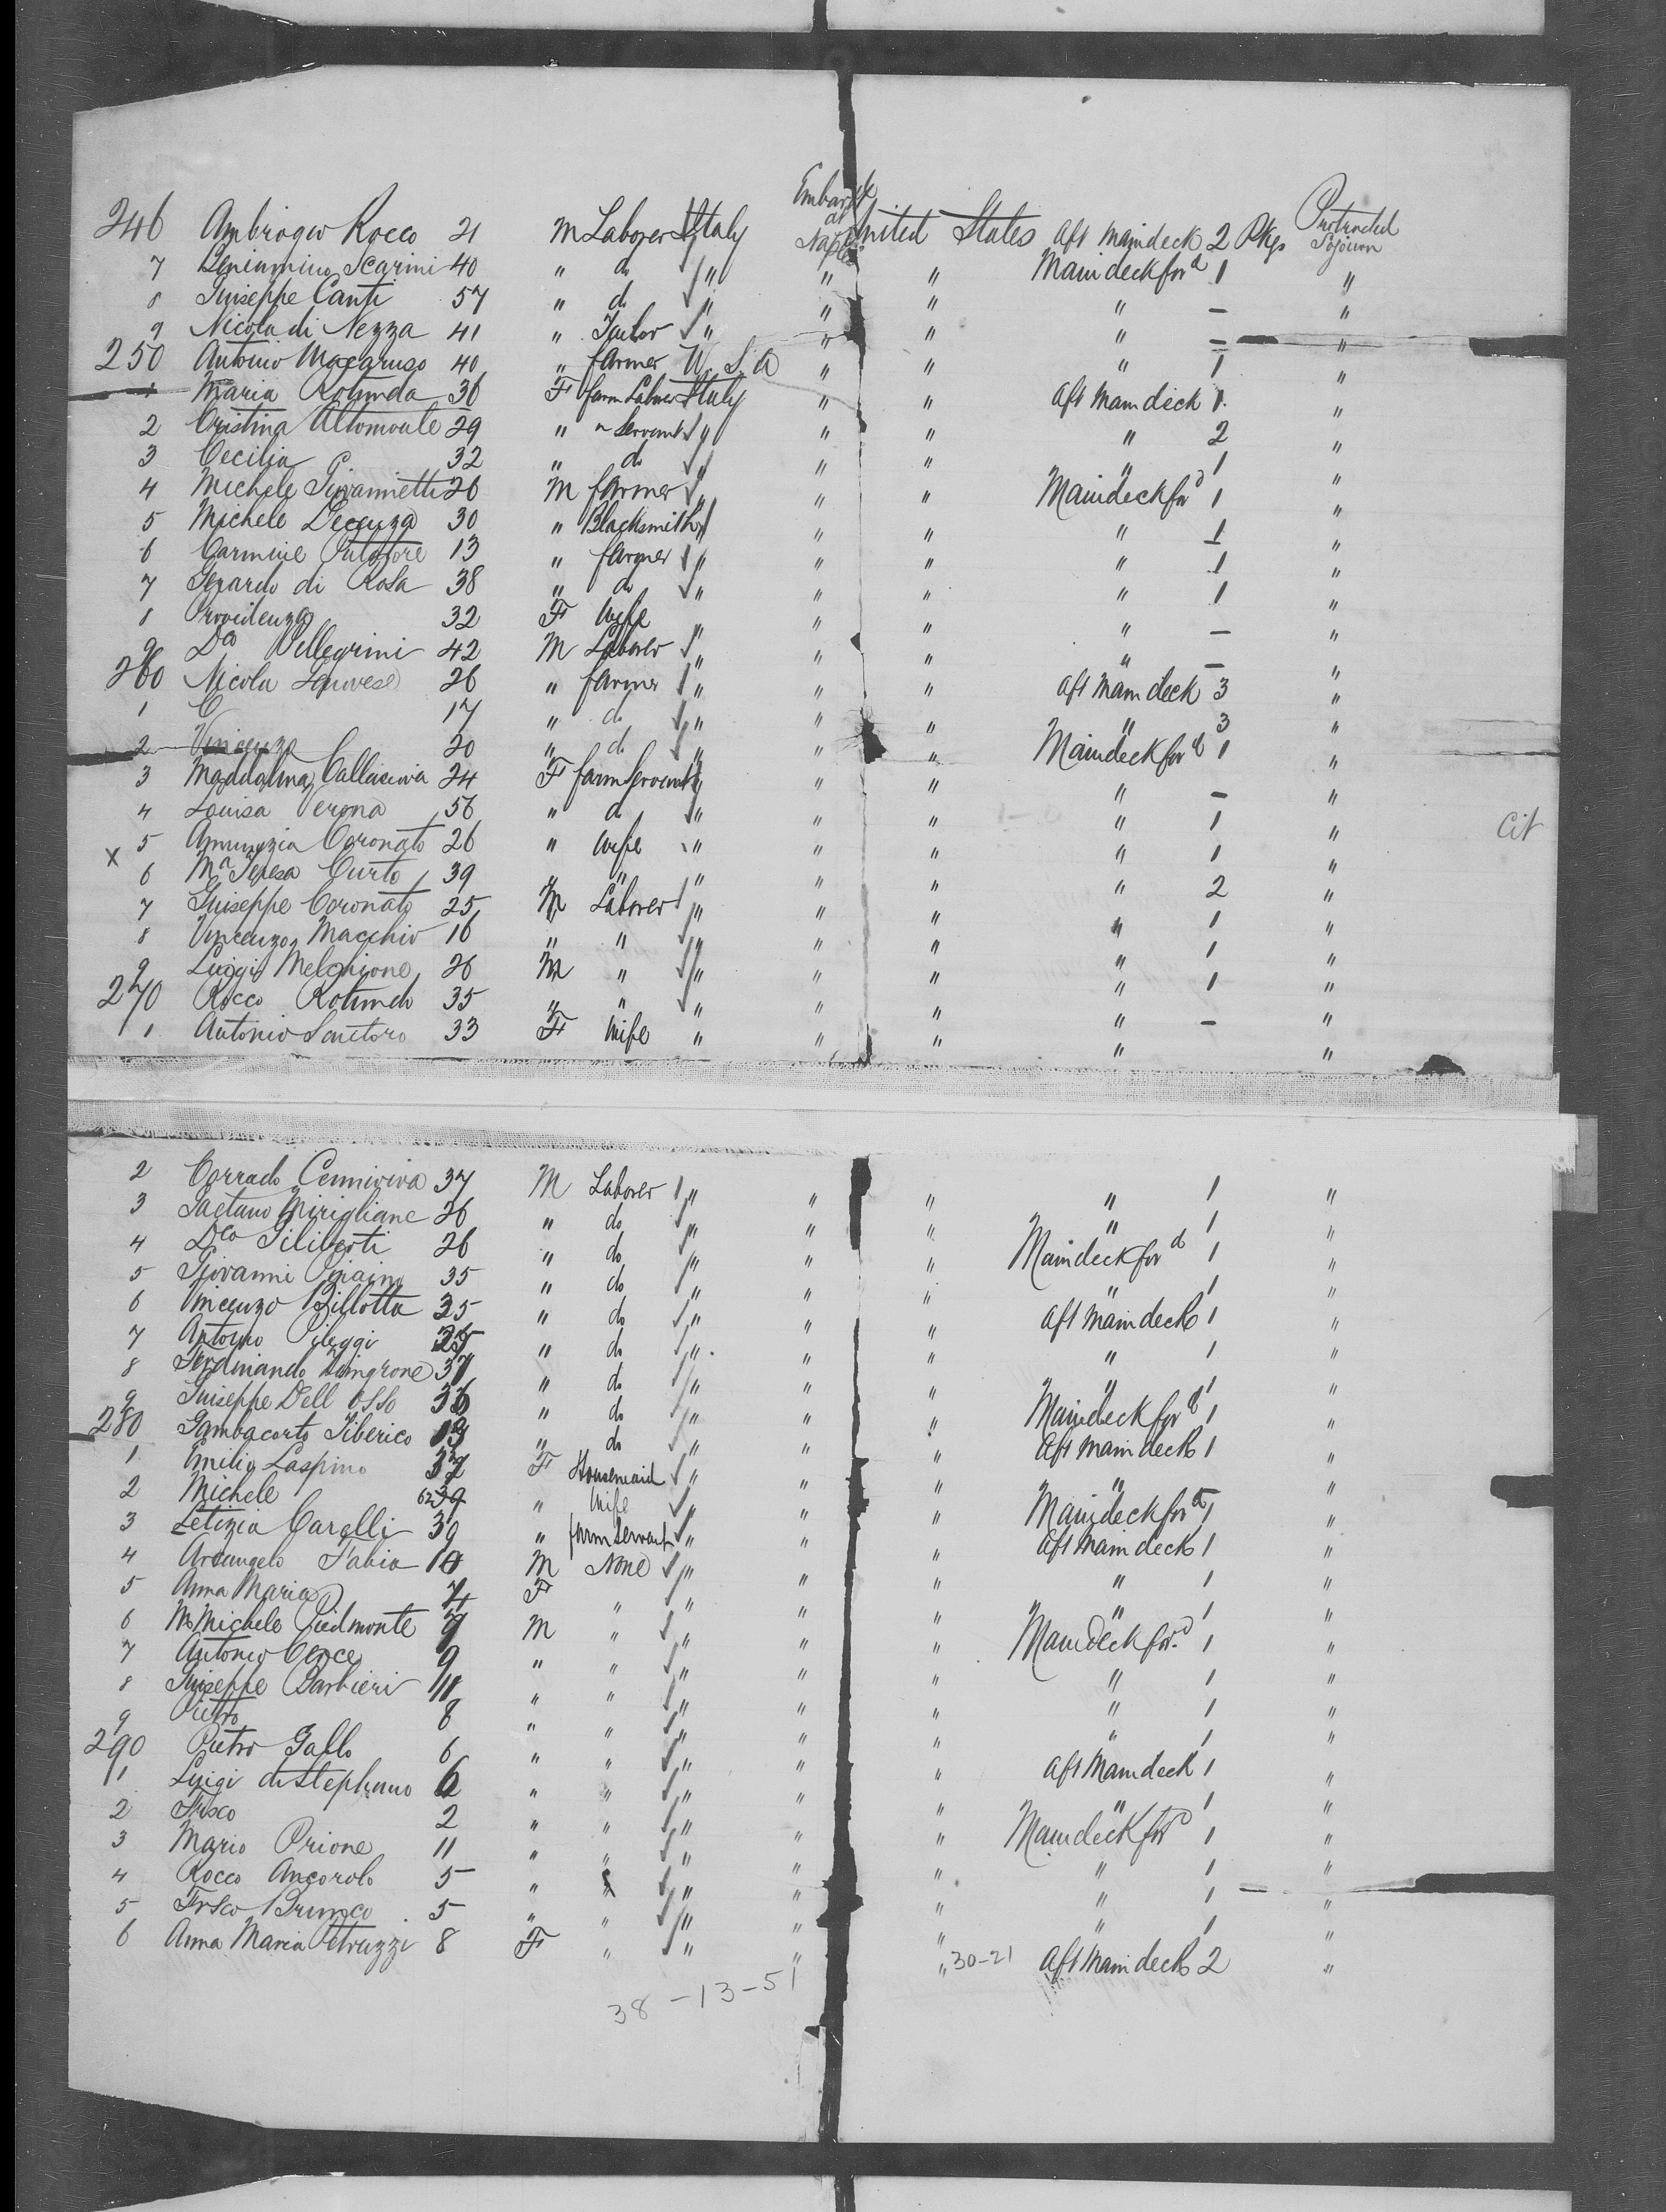 Embark at Naples
Protracted Sojourn
246 Ambrogio Rocco 21 M Laborer Italy United States aft maindeck 2 Pkgs
7 Beniamino Scarini 40 " do " " " Maindeck ford 1 "
8 Guiseppe Canti 57 " do " " " " — "
9 Nicola di Nezza 41 " Tailor " " " " — "
250 Antonio Maccaruso 40 " farmer U.S.A " " " 1 "
1 Maria Rotunda 36 F farm Laborer Italy " " aft maindeck 1 "
2 Cristina Altomonte 29 " " Servant " " " " 2 "
3 Cecilia 32 " do " " " " 1 "
4 Michele Giovannetti 26 M farmer " " " Maindeck ford 1 "
5 Michele 30 " Blacksmith " " " " 1 "
6 Carmine 13 " farmer " " " " 1 "
7 di Rosa 38 " do " " " " 1 "
8 Providenza 32 F Wife " " " " — "
9 Dco Pellegrini 42 M Laborer " " " " — "
260 Nicola Genovese 26 " farmer " " " aft maindeck 3 "
1 17 " do " " " " 3 "
2 Vincenzo 20 " do " " " Maindeck ford 1 "
3 Maddalina 24 F farm Servant " " " " — "
4 Louisa Verona 56 " do " " " " 1 "
X 5 Annunzia Coronato 26 " Wife " " " " 1 " Cit
6 Ma Teresa Curto 39 " " " " " " 2 "
7 Guiseppe Coronato 25 M Laborer " " " " 1 "
8 Vincenzo Macchio 16 " " " " " " 1 "
9 Luiggi Melchione 26 M " " " " " 1 "
270 Rocco Rotundo 35 " " " " " " — "
1 Antonio Santoro 33 F Wife " " " " "
2 Corrado 37 M Laborer " " " " 1 "
3 Gaetano Mirigliane 26 " do " " " " 1 "
4 Dco Giliberti 26 " do " " " Maindeck ford 1 "
5 Giovanni Piraino 35 " do " " " " 1 "
6 Vincenzo Billotta 35 " do " " " aft maindeck 1 "
7 Antonio Pileggi " do " " " " 1 "
8 Ferdinando 37 " do " " " " 1 "
9 Guiseppe Dell Osso 36 " do " " " Maindeck ford 1 "
280 Gambacorto Tiberico 13 " do " " " aft maindeck 1 "
1 Emilia Laspino 37 F Housemaid " " " " "
2 Michele 39 " Wife " " " Maindeck ford 1 "
3 Letizia Carelli 39 " farm Servant " " " aft maindeck 1 "
4 Arcangelo Fabia M None " " " " 1 "
5 Anna Maria F " " " " " 1 "
6 Michele Piedmonte 9 M " " " " Maindeck ford 1 "
7 Antonio Cence 9 " " " " " " 1 "
8 Guiseppe Barbieri " " " " " " 1 "
9 Pietro 8 " " " " " " 1 "
290 Pietro Gallo 6 " " " " " aft maindeck 1 "
1 Luigi di Stephano 6 " " " " " " 1 "
2 Frsco 2 " " " " " Maindeck ford 1 "
3 Mario Prione 11 " " " " " " 1 "
4 Rocco Ancorolo 5 " " " " " " 1 "
5 Frsco 5 " " " " " " 1 "
6 Anna Maria Petruzzi 8 F " " " " 30-21 aft maindeck 2 "
38-13-51